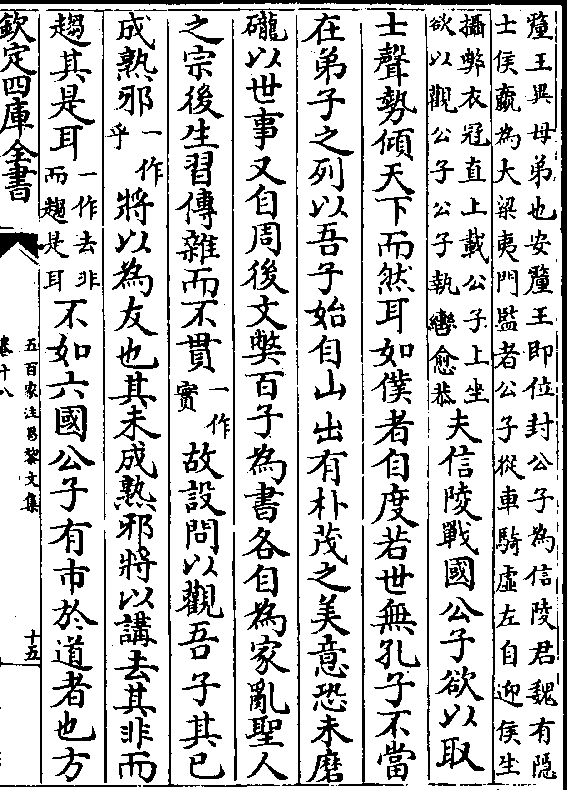 釐王異母弟也安釐王即位封公子為信陵君魏有隠
士侯嬴為大梁夷門監者公子從車騎虚左自迎侯生
攝弊衣冠直上載公子上坐
欲以觀公子公子執轡愈恭
夫信陵戰國公子欲以取
士聲勢傾天下而然耳如僕者自度若世無孔子不當
在弟子之列以吾子始自山出有朴茂之美意恐未磨
礲以世事又自周後文弊百子為書各自為家亂聖人
之宗後生習傳雜而不貫一作實故設問以觀吾子其已
成熟邪一作乎將以為友也其未成熟邪將以講去其非而
趨其是耳一作去非而趨是耳不如六國公子有市於道者也方
欽定四庫全書
卷十八
五百家注昌黎文集
十五